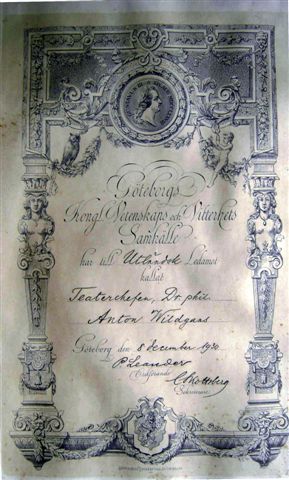 Göteborgs
Kongl. Vetenskaps och Vitterhets
Samhälle
har till Utländsk Ledamot
kallat
Teaterchefen, Dr phil.
Anton Wildgans
Göteborg den 8 december 1930
P Leander
Ordförande
C Skottsberg
Sekreterare